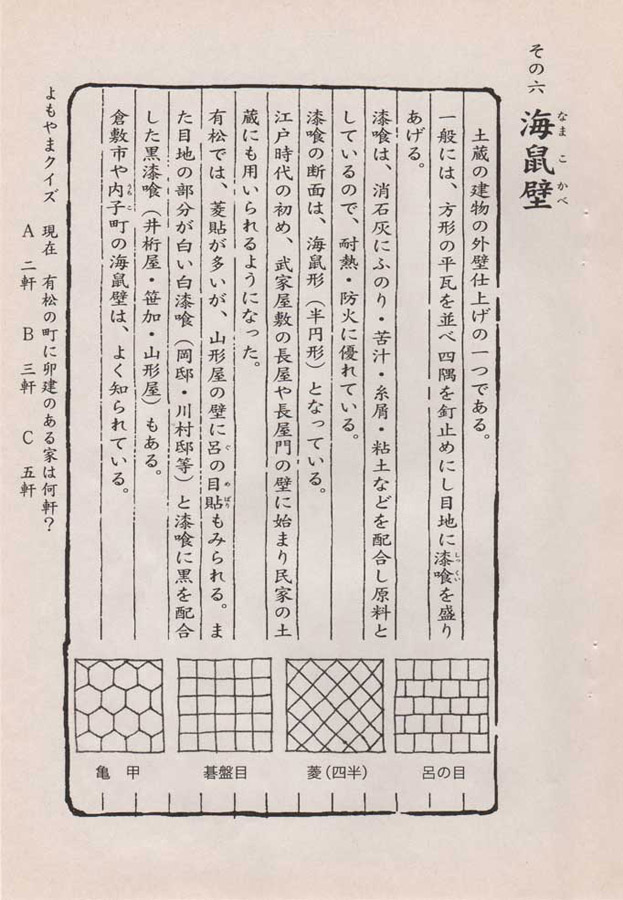 その六 海鼠壁
なまこかべ
土蔵の建物の外壁仕上げの一つである。
一般には、方形の平瓦を並べ四隅を釘止めにし目地に漆喰を盛り
しっくい
あげる。
漆喰は、消石灰にふのり・苦汁・糸屑・粘土などを配合し原料と
しているので、耐熱・防火に優れている。
漆喰の断面は、海鼠形(半円形)となっている。
江戸時代の初め、武家屋敷の長屋や長屋門の壁に始まり民家の土
蔵にも用いられるようになった。
有松では、菱貼が多いが、山形屋の壁に呂の目貼もみられる。ま
ぐめばり
た目地の部分が白い白漆喰(岡邸・川村邸等)と漆喰に黒を配合
した黒漆喰(井桁屋・笹加・山形屋)もある。
倉敷市や内子町の海鼠壁は、よく知られている。
うちこ
呂の目
菱(四半)
碁盤目
亀甲
よもやまクイズ 現在 有松の町に卯建のある家は何軒?
A 二軒 B 三軒 C 五軒